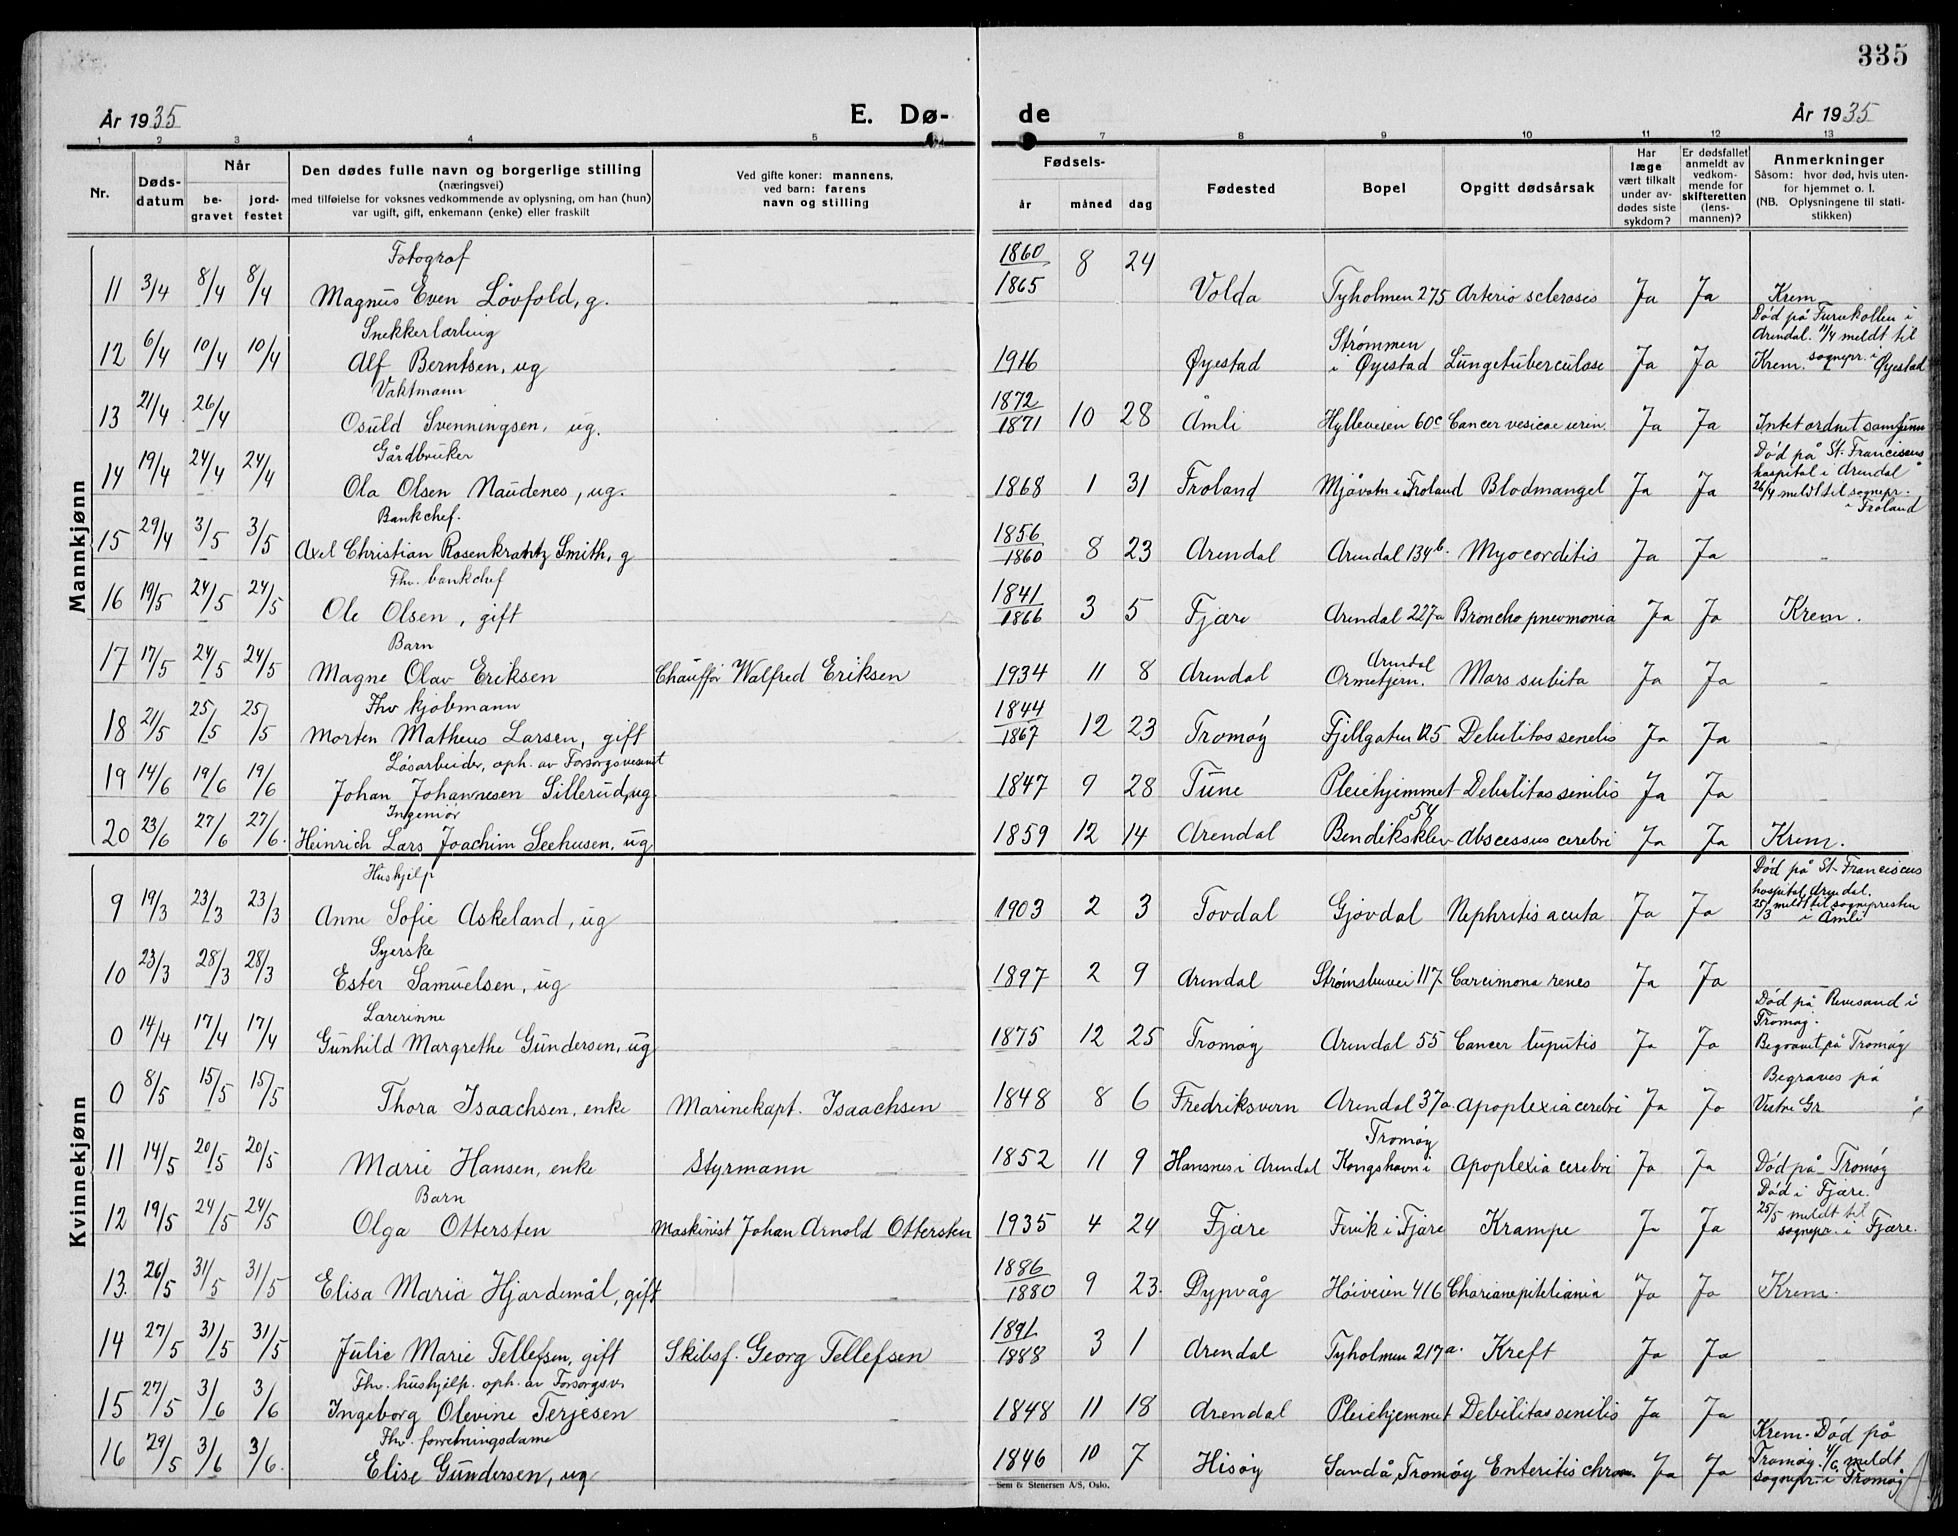 335
År 1935 E. Dø- de År 1935
1 2 3 4 5 7 8 9 10 11 12 13
Nr.
Døds-datum
Når
be-gravet
jord-festet
Den dødes fulle navn og borgerlige stilling
(næringsvei)
med tilføielse for voksnes vedkommende av oplysning, om han (hun)
var ugift, gift, enkemann (enke) eller fraskilt
Ved gifte koner: mannens,
ved barn: farens
navn og stilling
Fødsels-
år måned dag
Fødested
Bopel
Opgitt dødsårsak
Har læge vært tilkalt under avdødes siste sykdom?
Er dødsfallet anmeldt av vedkommende for skifteretten (lensmannen)?
Anmerkninger
Såsom: hvor død, hvis utenfor hjemmet o. l.
(NB. Oplysningene til statistikken)
Mannkjønn
Fotograf 1860
11 3/4 8/4 8/4 Magnus Even Løvfold, g. 1865 8 24 Volda Tyholmen 275 Arterio sclerosis Ja Ja Krem
Snekkerlærling Strømmen Død på Furukollen i
Arendal. 11/4 meldt til
12 6/4 10/4 10/4 Alf Berntsen, ug 1916 Øyestad i Øyestad Lungetuberculose Ja Ja Krem. sognepr. i Øyestad
Vaktmann 1872
13 21/4 26/4 Osuld Svenningsen, ug. 1871 10 28 Åmli Hylleveien 60c Cancer vesicae urin. Ja Ja Intet ordnet samfunn
Gårdbruker Død på St. Franciscus
hospital i Arendal
14 19/4 24/4 24/4 Ola Olsen Naudenes, ug. 1868 1 31 Froland Mjåvatn i Froland Blodmangel Ja Ja 26/4 meldt til sognepr.
i Froland
Bankchef. 1856
15 29/4 3/5 3/5 Axel Christian Rosenkrantz Smith, g 1860 8 23 Arendal Arendal 134b. Myocorditis Ja Ja —
Fhv. bankchef 1841
16 19/5 24/5 24/5 Ole Olsen, gift 1866 3 5 Fjære Arendal 227a Broncho pneumonia Ja Ja Krem.
Barn Arendal
17 17/5 24/5 24/5 Magne Olav Eriksen Chauffør Walfred Eriksen 1934 11 8 Arendal Ormetjern. Mors subita Ja Ja —
Fhv kjøbmann 1844
18 21/5 25/5 25/5 Morten Matheus Larsen, gift 1867 12 23 Tromøy Fjellgaten 125 Debilitas senelis Ja Ja —
Løsarbeider, oph. av Forsorgsvesenet
19 14/6 19/6 19/6 Johan Johannesen Sillerud, ug. 1847 9 28 Tune Pleiehjemmet Debilitas senilis Ja Ja —
Ingeniør 54
20 23/6 27/6 27/6. Heinrich Lars Joachim Seehusen, ug 1859 12 14 Arendal Bendiksklev Abscessus cerebri Ja Ja Krem.
Kvinnekjønn
Hushjelp Død på St. Franciscus
hospital, Arendal.
9 19/3 23/3 23/3 Anne Sofie Askeland, ug 1903 2 3 Tovdal Gjøvdal Nephritis acuta Ja Ja 25/3 meldt til sognepresten
i Åmli
Syerske
10 23/3 28/3 28/3 Ester Samuelsen, ug 1897 2 9 Arendal Strømsbuvei 117 Carcimona renes Ja Ja
Lærerinne Død på Revesand i
Tromøy.
0 14/4 17/4 17/4 Gunhild Margrethe Gundersen, ug 1875 12 25 Tromøy Arendal 55 Cancer Ja Ja Begravet på Tromøy
Begraves på
0 8/5 15/5 15/5 Thora Isaachsen, enke Marinekapt. Isaachsen 1848 8 6 Fredriksvern Arendal 37a. Apoplexia cerebri Ja Ja Vestre Gr
Tromøy
11 14/5 20/5 20/5 Marie Hansen, enke Styrmann 1852 11 9 Hansnes i Arendal Kongshavn i Apoplexia cerebri Ja Ja Død på Tromøy
Barn Død i Fjære.
12 19/5 24/5 24/5 Olga Ottersten Maskinist Johan Arnold Ottersten 1935 4 24 Fjære Fevik i Fjære Krampe Ja Ja 25/5 meldt til
sognepr. i Fjære.
1886
13. 26/5 31/5 31/5 Elisa Maria Hjardemål, gift 1880 9 23. Dypvåg Høiveien 416 Ja Ja Krem.
1891
14 27/5 31/5 31/5 Julie Marie Tellefsen, gift Skibsf. Georg Tellefsen 1888 3 1 Arendal Tyholmen 217a. Kreft Ja Ja —
Fhv. hushjelp. oph. av Forsorgsv.
15 27/5 3/6 3/6 Ingeborg Olevine Terjesen 1848 11 18 Arendal Pleiehjemmet Debilitas senilis Ja Ja
Fhv. forretningsdame Krem. Død på
16 29/5 3/6 3/6. Elise Gundersen, ug 1846 10 7 Hisøy Sandå, Tromøy Enteritis chron. Ja Ja Tromøy. 4/6 meldt
sognepr. i Tromøy
Sem & Stenersen A/S, Oslo.